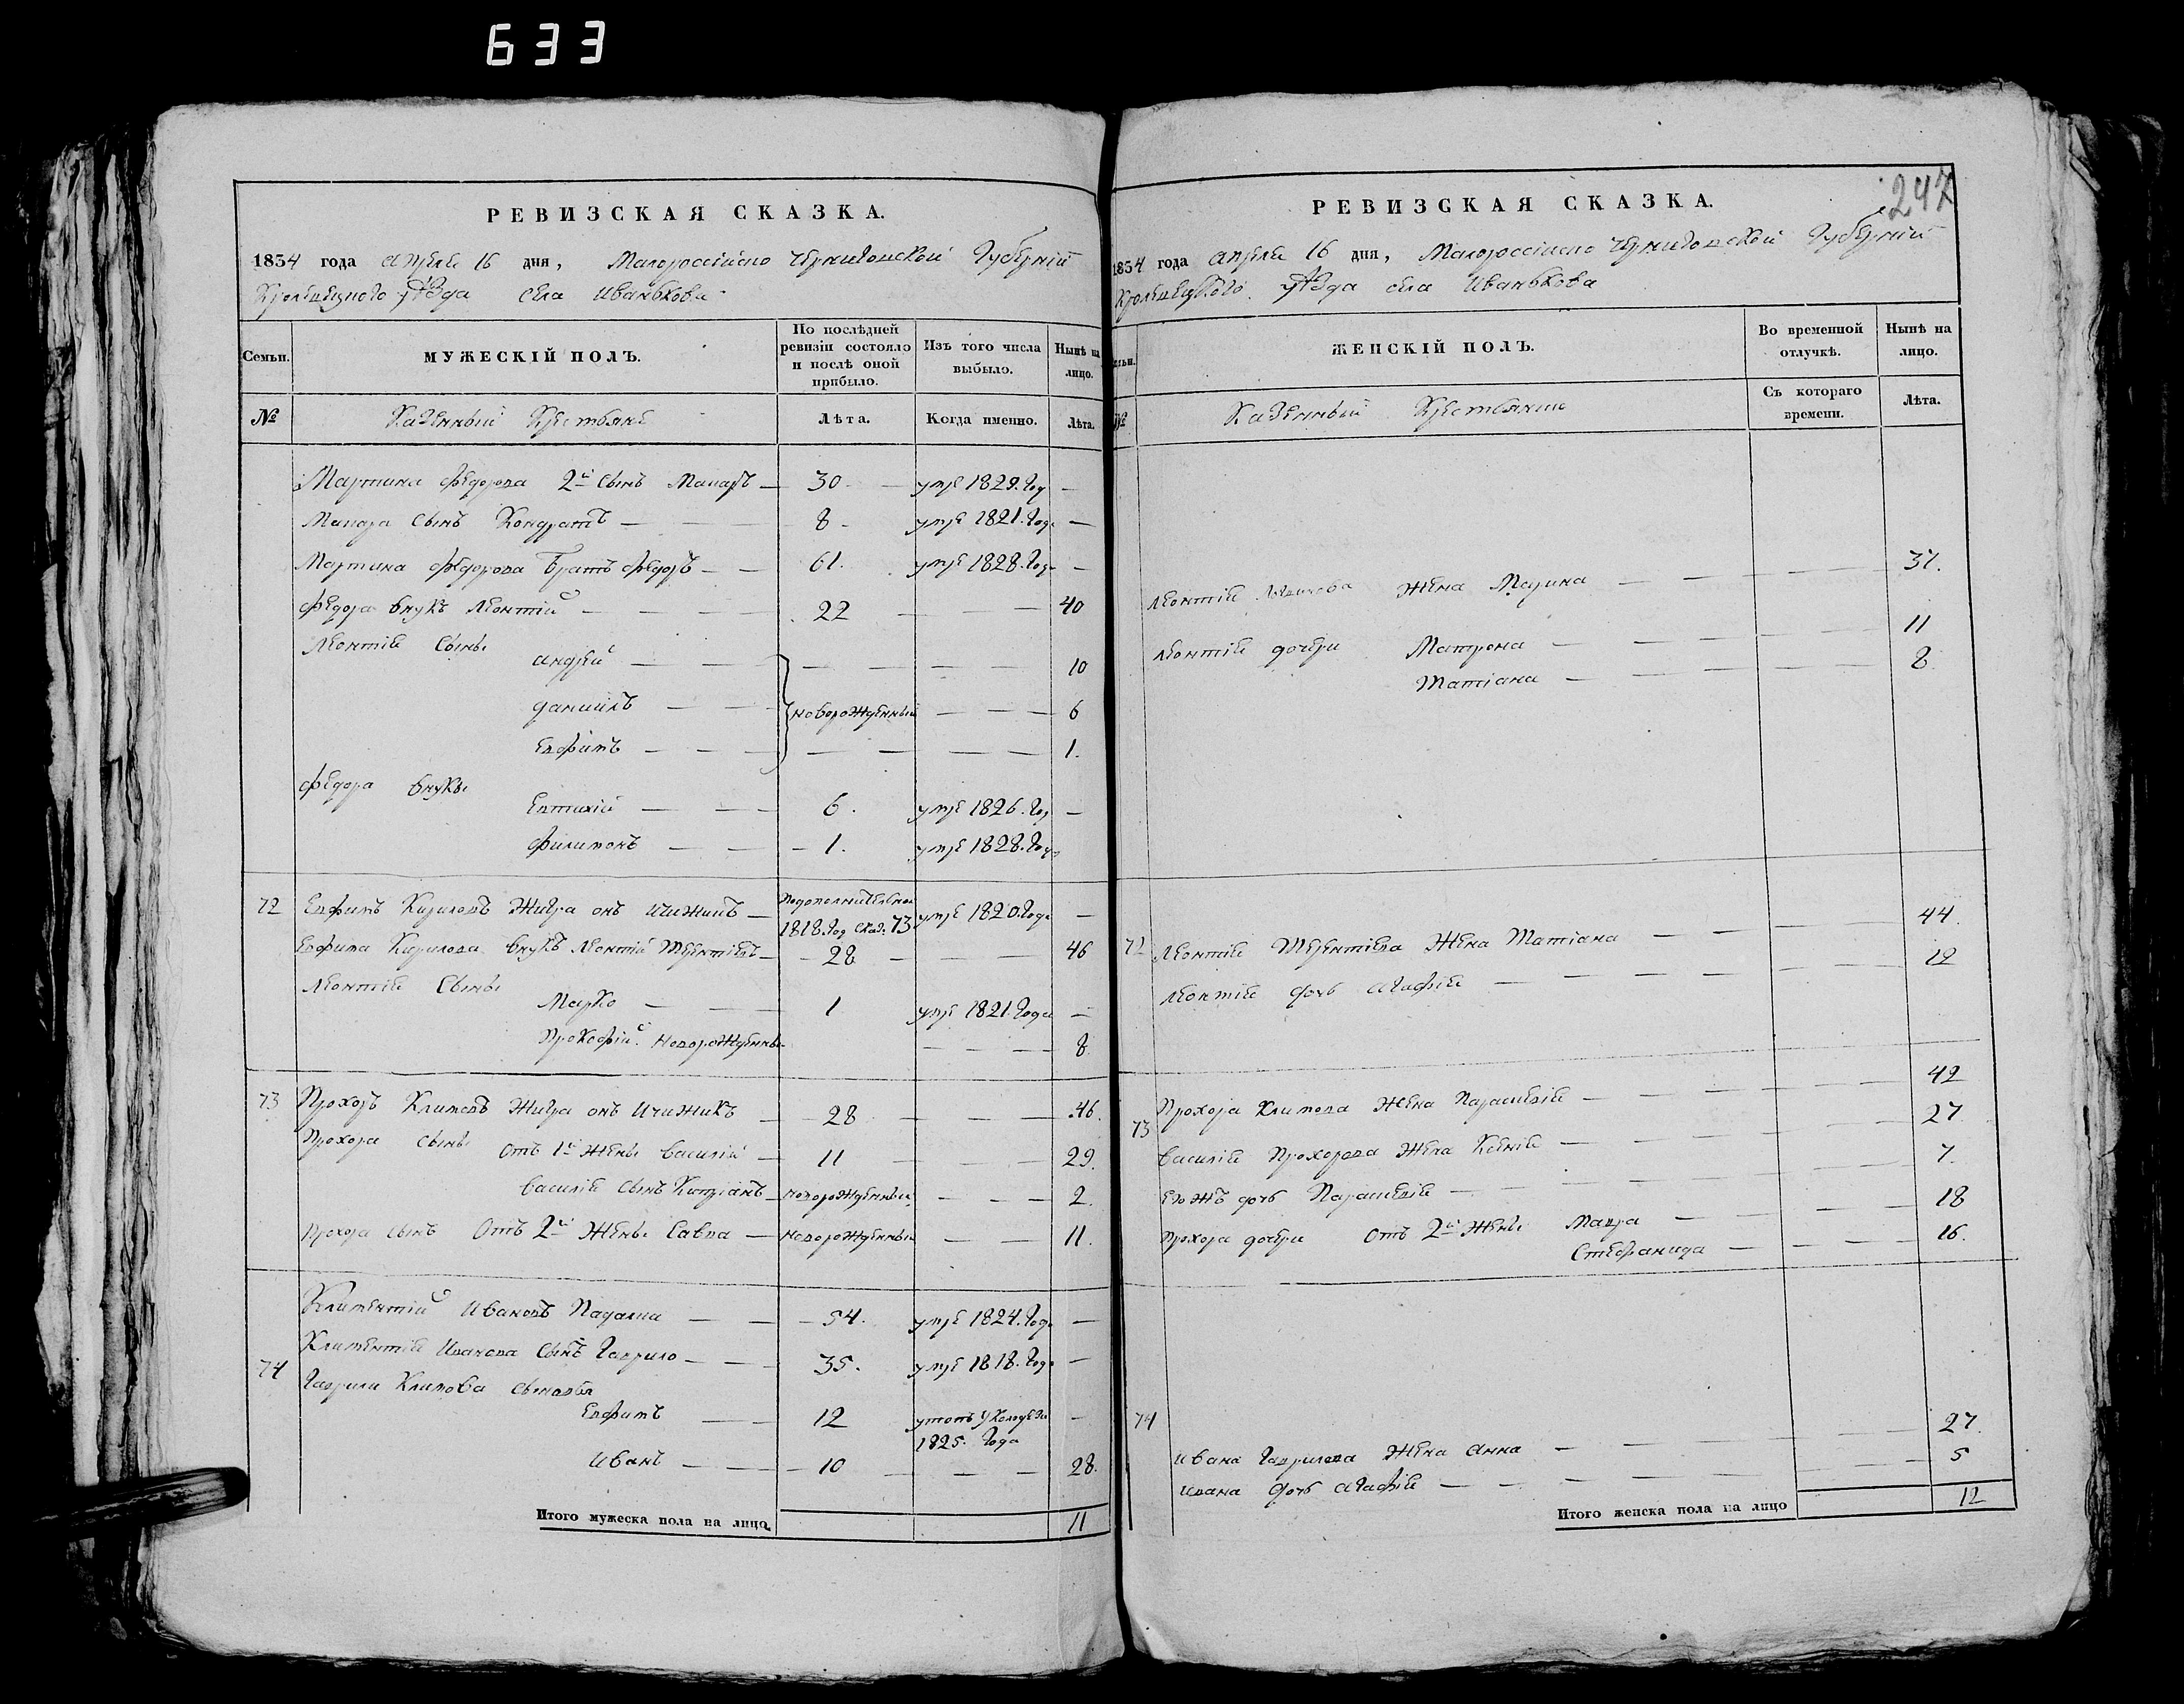 633
РЕВИЗСКАЯ СКАЗКА.
1834 года апреля 16 дня, Малороссийско Черниговской Губернии
Кролевецкого уѣзда села Иванькова
Семьи. МУЖЕСКІЙ ПОЛЪ. По послѣдней ревизіи состояло и послѣ оной прибыло. Изъ того числа выбыло. Нынѣ на лицо.
№ Казенный Крестьяне Лѣта. Когда именно. Лѣта.
Мартина Федорова 2й сынъ Макаръ — 30 — умре 1829. Год —
Макара сынъ Кондратъ — 8 — умре 1821. Года —
Мартина Федорова братъ Федоръ — 61. умре 1828. Года —
Федора внукъ Леонтій — 22 — 40
Леонтіе сыны
андрей — 10
даниилъ — новорожденный — 6
Евфимъ — 1.
Федора внукы
Евтихій — 6. умре 1826. Год —
Филимонъ — 1. умре 1828. Года
72 Евфимъ Кириловъ Жигра онъ Чижикъ — Подополнительной 1818. Год сказ. 73 умре 1820. Года —
Евфима Кирилова внукъ Леонтій Терентіевъ — 28 — 46
Леонтіе сыны
Марко — 1 умре 1821. Года —
Прокофій. Новорожденны — 8
73 Прохоръ Климовъ Жигра онъ Чижикъ — 28 — 46.
Прохора сыны отъ 1й жены Василій — 11 — 29.
Василіе сынъ Кипріанъ — новорожденный — 2.
Прохора сынъ отъ 2й жены Савва — новорожденный — 11.
74 Климентій Ивановъ Падалка — 54. умре 1824. Года —
Климентіе Иванова сынъ Гаврило — 35. умре 1818. Года —
Гаврила Климова сыновья
Евфимъ — 12 утопъ у Колодезе 1825. Года —
Иванъ — 10 — 28.
Итого мужеска пола на лицо 11
247
РЕВИЗСКАЯ СКАЗКА.
1834 года апреля 16 дня, Малороссийско Черниговской Губернии
Кролевецкого уѣзда села Иванькова
Семьи. ЖЕНСКІЙ ПОЛЪ. Во временной отлучкѣ. Нынѣ на лицо.
№ Казенный Крестьянки Съ котораго времени. Лѣта.
Леонтіе жена Марина — 37.
Леонтіе дочери Матрона — 11
Татіана — 8
72 Леонтіе Терентіева жена Татіана — 44.
Леонтіе дочь Агафіе — 12
73 Прохора Климова жена Параскевіе — 42
Василіе Прохорова жена Ксеніе — 27
Егожъ дочь Параскевіе — 7.
Прохора дочери отъ 2й жены Мавра — 18
Стефанида — 16.
74 Ивана Гаврилова жена Анна — 27.
Ивана дочь Агафіе — 5
Итого женска пола на лицо 12